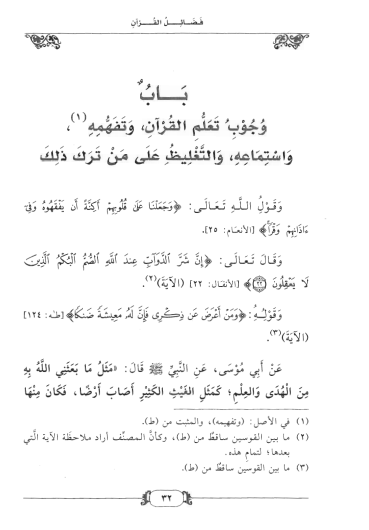 فَضَائِلُ القُرْآنِ
بَـــابُ
وُجُوْبِ تَعَلُّمِ القُرْآنِ، وَتَفَهُّمِهِ(١)،
وَاسْتِمَاعِهِ، وَالتَّغْلِيظُ عَلَى مَنْ تَرَكَ ذَلِكَ
وَقَوْلُ اللَّهِ تَعَالَى: ﴿وَجَعَلْنَا عَلَىٰ قُلُوبِهِمْ أَكِنَّةً أَن يَفْقَهُوهُ وَفِي
ءَاذَانِهِمْ وَقْرًا﴾ [الأنعام: ٢٥].
وَقَالَ تَعَالَى: ﴿إِنَّ شَرَّ الدَّوَابِّ عِندَ اللَّهِ الصُّمُّ الْبُكْمُ الَّذِينَ
لَا يَعْقِلُونَ ٢٢﴾ [الأنفال: ٢٢] (الآيَة)(٢).
وَقَوْلِـهُ: ﴿وَمَنْ أَعْرَضَ عَن ذِكْرِى فَإِنَّ لَهُ مَعِيشَةً ضَنكًا﴾ [طه: ١٢٤]
(الآيَة)(٣).
عَنْ أَبِي مُوْسَى، عَنِ النَّبِيِّ ﷺ قَالَ: «مَثَلُ مَا بَعَثَنِي اللَّهُ بِهِ
مِنَ الْهُدَى وَالعِلْمِ؛ كَمَثَلِ الغَيْثِ الكَثِيْرِ أَصَابَ أَرْضًا، فَكَانَ مِنْهَا
(١) في الأصل: (وتفهيمه)، والمثبت من (ط).
(٢) ما بين القوسين ساقطٌ من (ط)، وكأنَّ المصنِّف أراد ملاحظَة الآية الَّتي
بعدها؛ لتمامِ هذه.
(٣) ما بين القوسين ساقطٌ من (ط).
٣٢